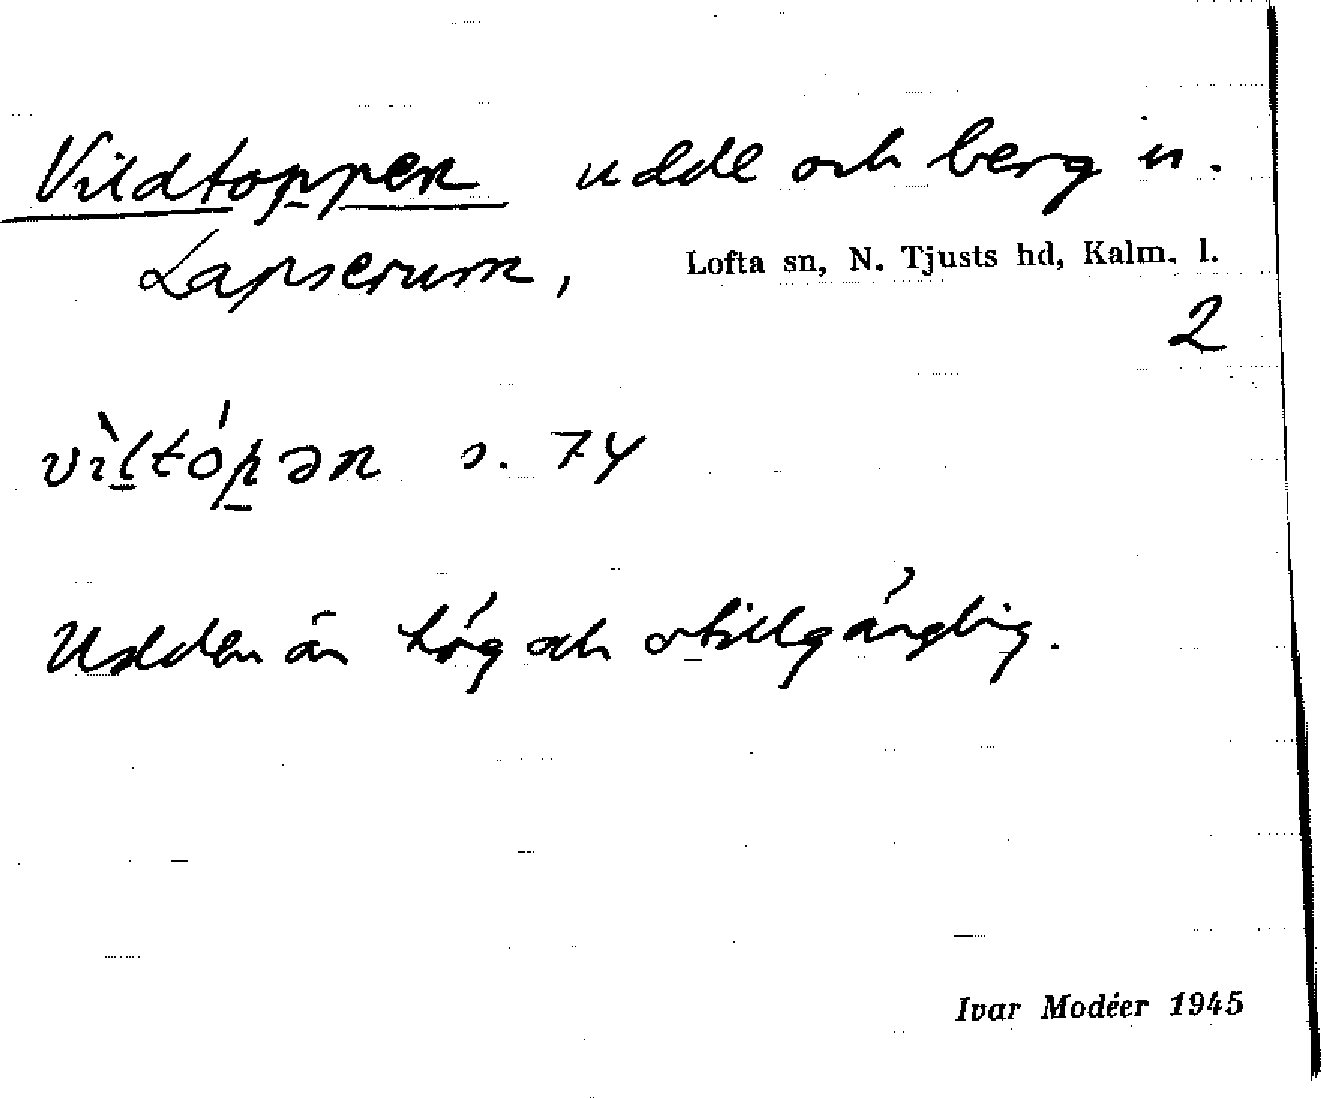 Vildtoppen udde och berg u.
Lapserum, Lofta sn, N. Tjusts hd, Kalm. l.
2
vìltópən s. 74
Udden är hög och otillgänglig.
Ivar Modéer 1945